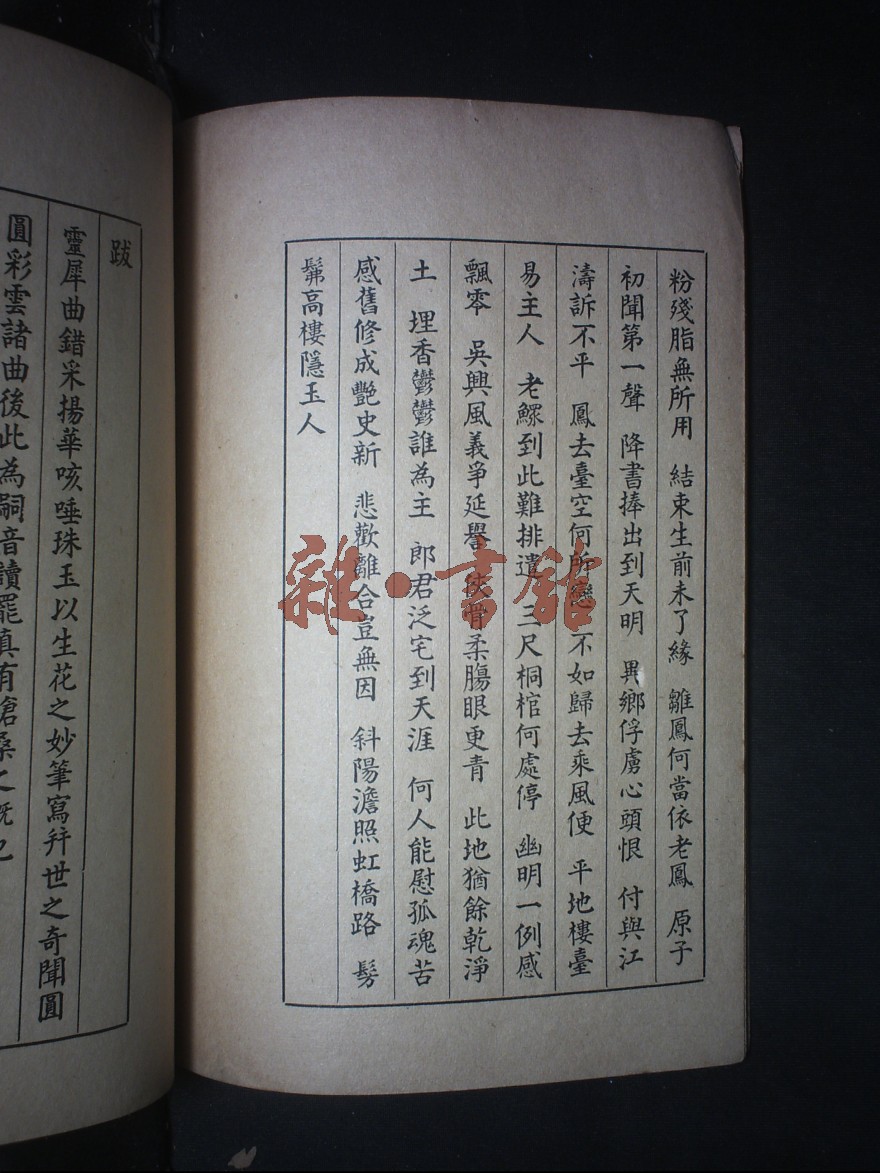 粉殘脂無所用 結束生前未了緣 雛鳳何當依老鳳 原子
初聞第一聲 降書捧出到天明 異鄉俘虜心頭恨 付與江
濤訴不平 鳳去臺空何所戀 不如歸去乘風便 平地樓臺
易主人 老鰥到此難排遣 三尺桐棺何處停 幽明一例感
飄零 吳興風義爭延譽 俠骨柔腸眼更青 此地猶餘乾淨
土 埋香鬱鬱誰為主 郎君泛宅到天涯 何人能慰孤魂苦
感舊修成艷史新 悲歡離合豈無因 斜陽澹照虹橋路 髣
髴高樓隱玉人
跋
靈犀曲錯采揚華咳唾珠玉以生花之妙筆寫幷世之奇聞圓
圓彩雲諸曲後此為嗣音讀罷真有滄桑之慨也
雜·書館